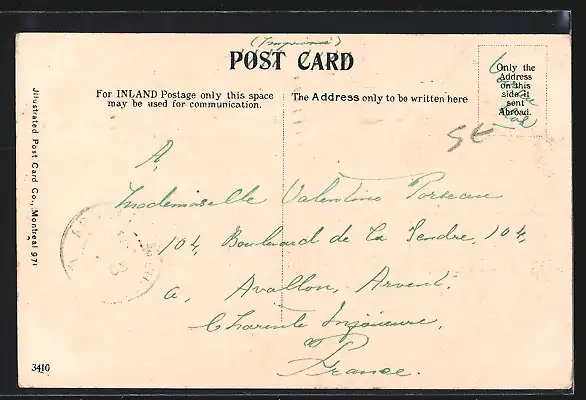 (Imprimé)
POST CARD
For INLAND Postage only this space
may be used for communication.
The Address only to be written here
Only the
Address
on this
side it
sent
Abroad.
SE
A,
Mademoiselle Valentino Porseau
104, Boulevard de La Sendre, 104,
a, Avallon, Arvert,
Charente Inférieure,
France.
Jllustrated Post Card Co., Montreal 971
3410